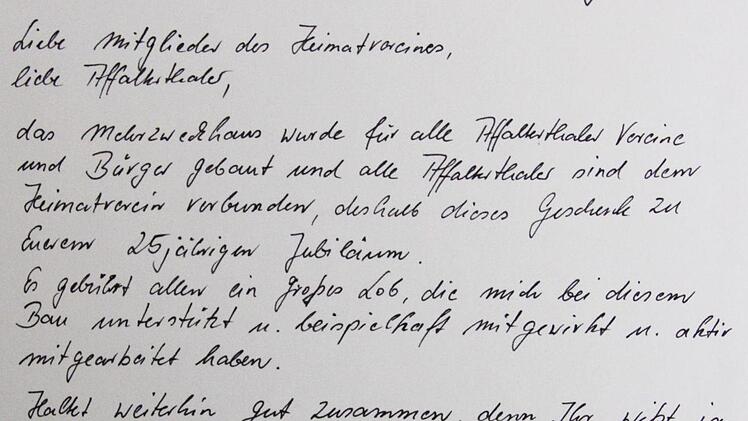 Liebe Mitglieder des Heimatvereines,
liebe Affalterthaler,
das Mehrzweckhaus wurde für alle Affalterthaler Vereine
und Bürger gebaut und alle Affalterthaler sind dem
Heimatverein verbunden, deshalb dieses Geschenk zu
Euerem 25jährigen Jubiläum.
Es gebührt allen ein großes Lob, die mich bei diesem
Bau unterstützt u. beispielhaft mitgewirkt u. aktiv
mitgearbeitet haben.
Haltet weiterhin gut zusammen, denn Ihr wißt ja